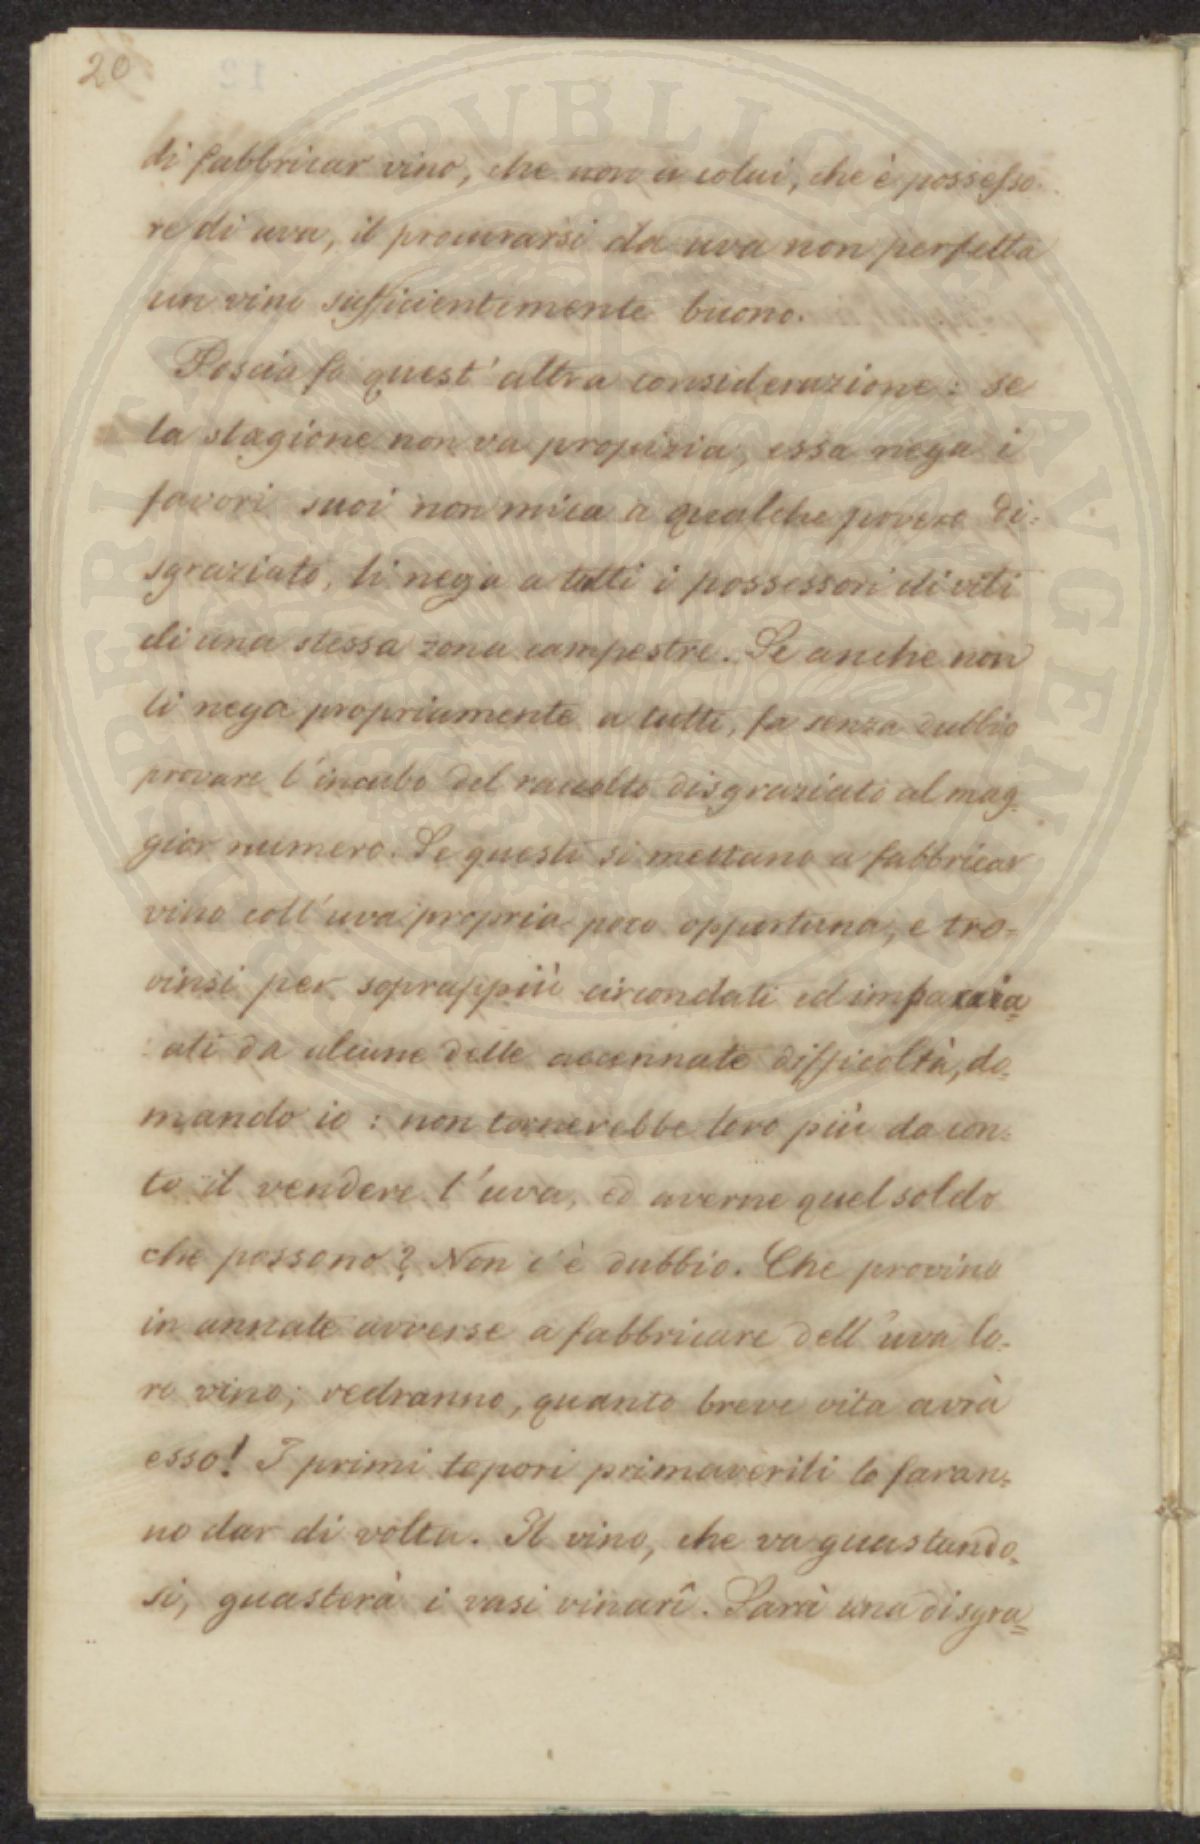 20
di fabbricar vino, che non a colui, che è possesso-
re di uva, il procurarsi da uva non perfetta
un vino sufficientemente buono.
Poscia fo quest'altra considerazione: se
la stagione non va propizia, essa nega i
favori suoi non mica a qualche povero di=
sgraziato, li nega a tutti i possessori di viti
di una stessa zona campestre. Se anche non
li nega propriamente a tutti, fa senza dubbio
provare l'incubo del raccolto disgraziato al mag-
gior numero. Se questi si mettano a fabbricar
vino coll'uva propria poco opportuna, e tro=
vinsi per soprappiù circondati ed impaccia=
ati da alcune delle accennate difficoltà, do-
mando io: non tornerebbe loro più da con=
to il vendere l'uva, ed averne quel soldo
che possono? Non c'è dubbio. Che provino
in annate avverse a fabbricare dell'uva lo-
ro vino; vedranno, quanto breve vita avrà
esso! I primi tepori primaverili lo faran=
no dar di volta. Il vino, che va guastando-
si, guasterà i vasi vinarî. Sarà una disgra=
PVBLICAE AVGENDAE PROSPERITATI